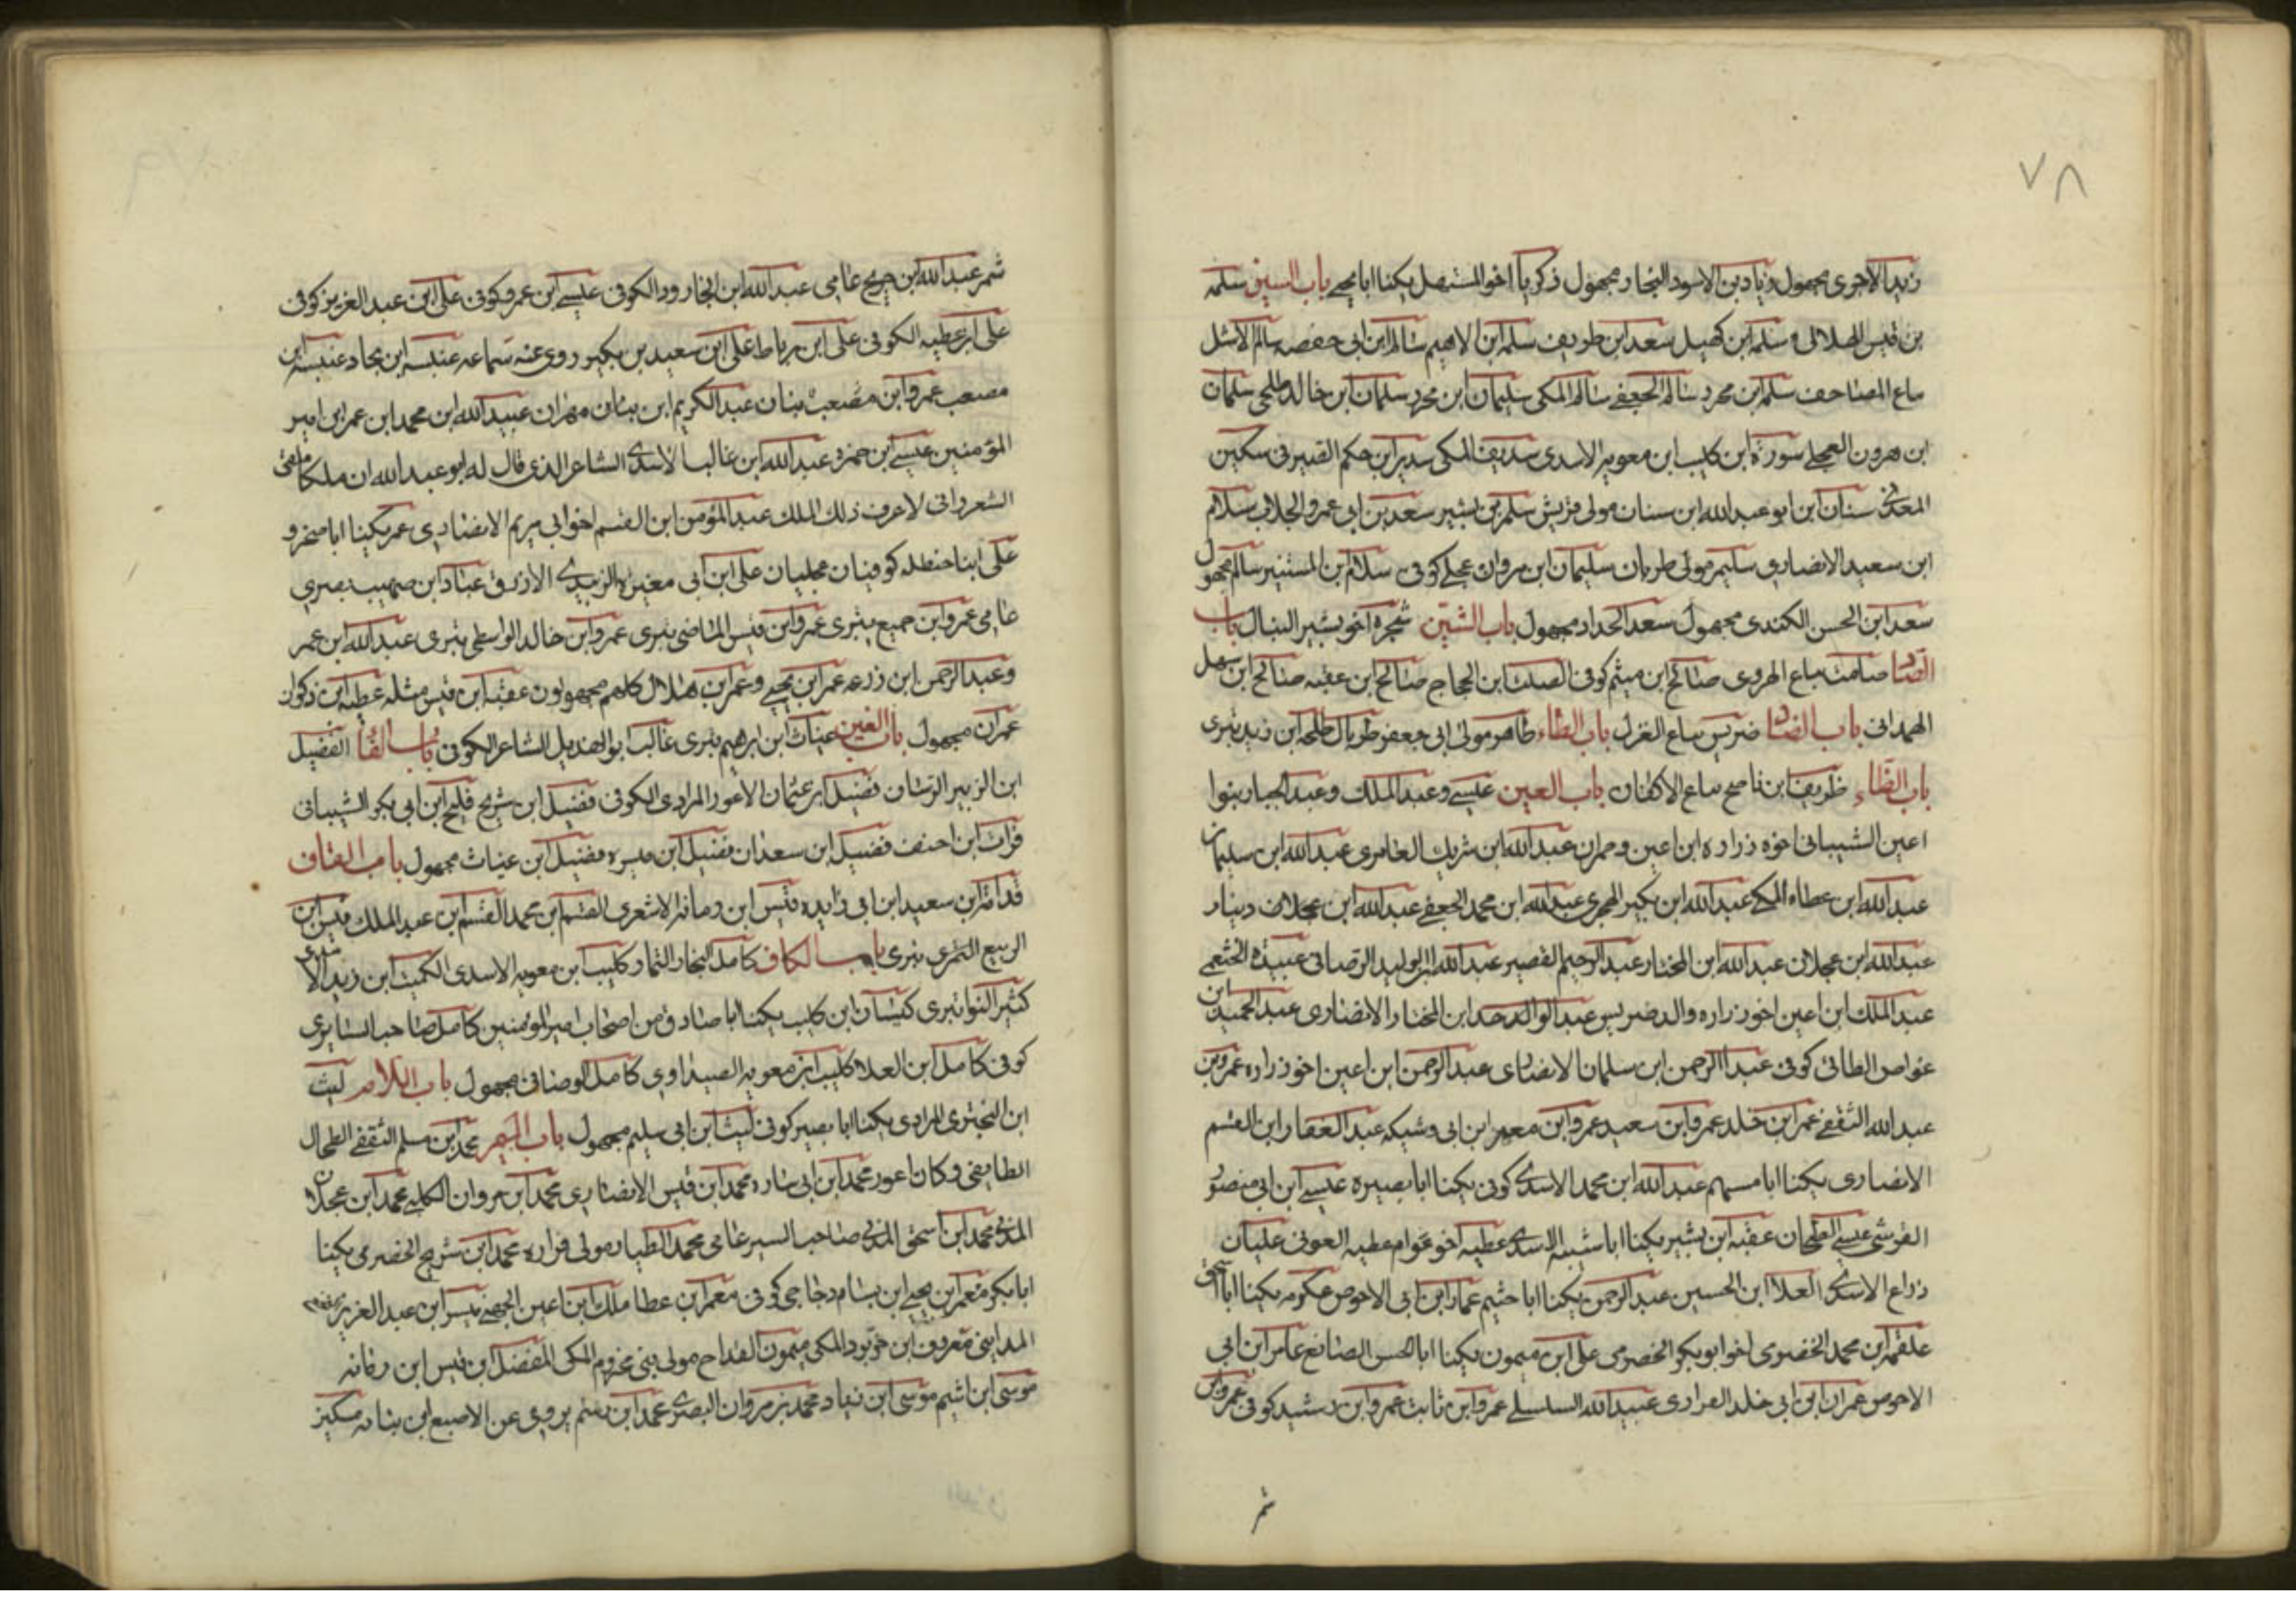 ٧٨
زيد الاجرى مجهول وزياد بن الاسود النجار مجهول زكريا اخو المستهل يكنا ابا يحيى باب السين سلمه
بن قيس الهلالى وسلمه ابن كهيل سعد ابن طريف سلمه ابن الاهيم سالم ابن ابى حفصه سالم الاشل
بياع المصاحف سلم ابن محرز سالم الجعفى سالم المكى سليمان ابن محرز سلمان ابن خالد طلحى سلمان
ابن هرون العجلى سورة ابن كليب ابن معويه الاسدى سديف المكى سدير ابن حكم الصيرفى سكين
المعدنى سنان ابن ابو عبد الله ابن سنان مولى قريش سلم بن بشير سعد بن ابى عمرو الجلاب سلام
ابن سعيد الانصارى سليم مولى طربال سليمان ابن مروان عجلى كوفى سلام بن المستنير سالم مجهول
سعد ابن الحسن الكندى مجهول سعد الحداد مجهول باب الشين شجره اخو بشير النبال باب
الصاد صامت بياع الهروى صالح ابن ميثم كوفى الصلت ابن الحجاج صالح ابن عقبه صالح ابن سهل
الهمدانى باب الضاد ضريس بياع الغزل باب الطاء طاهر مولى ابى جعفر طربال طلحه ابن زيد بترى
باب الظاء ظريف ابن ناصح بياع الاكفان باب العين عيسى وعبد الملك وعبد الجبار بنوا
اعين الشيبانى اخوه زراره ابن اعين وحمران عبد الله ابن شريك العامرى عبد الله ابن سليمان
عبد الله ابن عطاء المكى عبد الله ابن بكير الهجرى عبد الله ابن محمد الجعفى عبد الله ابن عجلان دينار
عبد الله ابن عجلان عبد الله ابن المختار عبد الرحيم القصير عبد الله ابن الوليد الوصافى عبيدة الخثعمى
عبد الملك ابن اعين اخو زراره والد ضريس عبد الواحد ابن المختار الانصارى عبد الحميد ابن
عواض الطائى كوفى عبد الرحمن ابن سلمان الانصارى عبد الرحمن ابن اعين اخو زراره عمرو بن
عبد الله الثقفى عمر ابن خلد عمرو ابن سعيد عمرو ابن معمر ابن ابى وشيكه عبد الغفار ابن القسم
الانصارى يكنا ابا مريم عبد الله ابن محمد الاسدى كوفى يكنا ابا بصيره عيسى ابن ابى منصور
القرشى عيسى الطحان عقبه ابن بشير يكنا ابا شيبه الاسدى عطيه اخو عوام عطيه العوفى عليان
ذراع الاسدى العلا ابن الحسين عبد الرحمن يكنا ابا خثيم عمار ابن ابى الاحوص عكرمه يكنا ابا اسحق
علقمه ابن محمد الحضرمى اخو ابو بكر الحضرمى على ابن ميمون يكنا ابا الحسن الصائغ عامر ابن ابى
الاحوص عمران ابن ابى خلد الفزارى عبيد الله السلسلى عمرو ابن ثابت عمرو ابن رشيد كوفى عمرو ابن
شمر
شمر عبد الله ابن جريح عامى عبد الله ابن الجارود الكوفى عيسى ابن عمرو كوفى على ابن عبد العزيز كوفى
على ابن عطيه الكوفى على ابن رباط على ابن سعيد بن بكير روى عنه سماعه عنبسه ابن بجاد عنبسه ابن
مصعب عمرو ابن مصعب بنان عبد الكريم ابن مهران عبيد الله ابن محمد ابن عمر ابن امير
المؤمنين عيسى ابن حمزه عبد الله ابن غالب الاسدى الشاعر الذى قال له ابو عبد الله ان ملكا يلقى
الشعر وانى لاعرف ذلك الملك عبد المؤمن ابن القسم اخو ابى مريم الانصارى عمر يكنا ابا صخر و
على ابنا حنظله كوفيان عجليان على ابن ابى مغيره الزبيدى الازرق عباد ابن صهيب بصرى
عامى عمرو ابن جميع بترى عمرو ابن قيس الماضى بترى عمرو ابن خالد الواسطى بترى عبد الله ابن عمر
وعبد الرحمن ابن زرعه عمر ابن يحيى وعمر ابن هلال كلهم مجهولون عقبه ابن قيس مثله عطيه ابن ذكوان
عمران مجهول باب الغين غياث ابن ابرهيم بترى غالب ابو الهذيل الشاعر الكوفى باب الفاء الفضيل
ابن الزبير الرسان فضيل ابن عثمان الاعور المرادى الكوفى فضيل ابن شريح فليح ابن ابى بكر الشيبانى
فرات ابن احنف فضيل ابن سعدان فضيل ابن ميسره فضيل ابن غياث مجهول باب القاف
قدامه ابن سعيد ابن ابى زايده قيس ابن رمانه الاشعرى القسم ابن محمد القسم ابن عبد الملك قيس ابن
الربيع بترى باب الكاف كامل النجار التمار كليب ابن معويه الاسدى الكميت ابن زيد الاسدى
كثير النوا بترى كيسان ابن كليب يكنا ابا صادق من اصحاب امير المومنين كامل صاحب السابرى
كوفى كامل ابن العلا كليب ابن معويه الصيداوى كامل الوصافى مجهول باب اللام ليث
ابن البخترى المرادى يكنا ابا بصير كوفى ليث ابن ابى سليم مجهول باب الميم محمد ابن مسلم الثقفى الطحان
الطايفى وكان اعور محمد ابن ابى ساره محمد ابن قيس الانصارى محمد ابن مروان الكلبى محمد ابن عجلان
المدنى محمد ابن اسحق المدنى صاحب السير عامى محمد الطيار مولى فزاره محمد ابن شريح الحضرمى يكنا
ابا بكر معمر ابن يحيى ابن بسام دجاجى كوفى معمر ابن عطا ملك ابن اعين الجهنى ميسر ابن عبد العزيز
المداينى معروف ابن خربوذ المكى ميمون القداح مولى بنى مخزوم المكى المفضل ابن قيس ابن رمانه
موسى ابن اشيم موسى ابن زياد محمد بن مروان البصرى محمد ابن رستم يروى عن الاصبغ ابن نباته مسكين